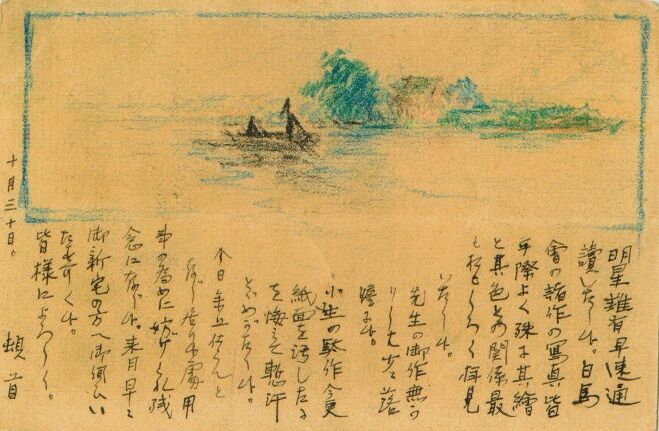 明星難有早速通
讀いたし候。白馬
會の諸作の寫真皆
手際よく殊に其繪
と其色との関係最
もおもしろく拝見
いたし候。
先生の御作無か
りしも少々落
膽に候。
小生の駄作今更
紙面を汚したる
を悔ゐ慙汗
とめがたく候。
今日参上せんと
存じ居り候處用
事の為めに妨げられ残
念に存じ候。来月早々
御新宅の方へ御伺ひい
たすべく候。
皆様によろしく。
頓首
十月三十日。